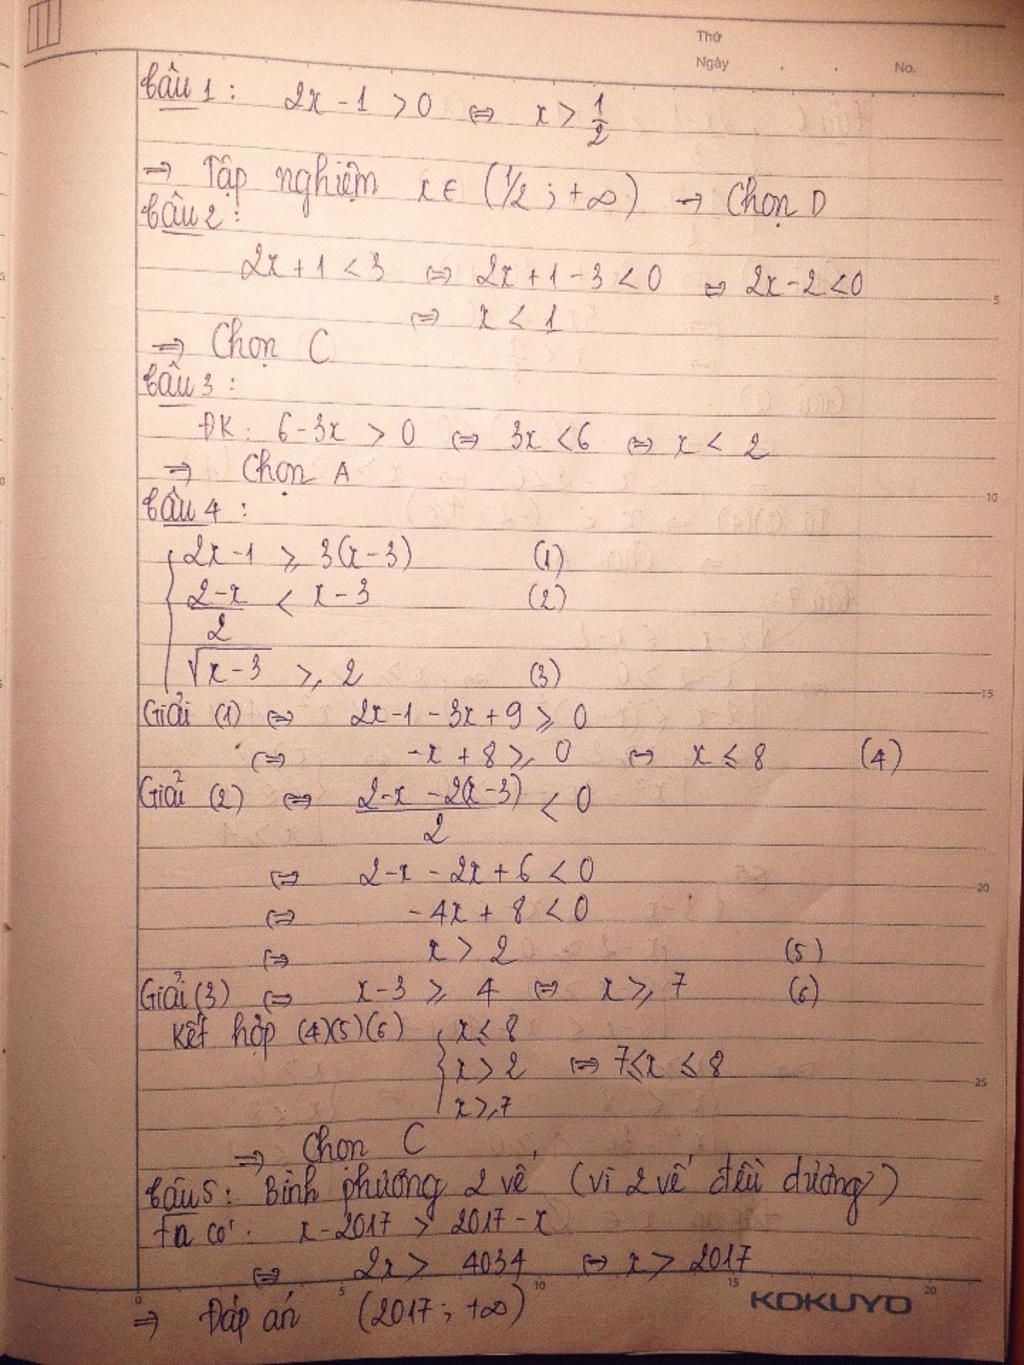 Thứ
Ngày . . No.
Câu 1 : 2x - 1 > 0 ⇔ x > 1/2
⇒ Tập nghiệm x ∈ (1/2 ; +∞) → Chọn D
Câu 2 :
2x + 1 < 3 ⇔ 2x + 1 - 3 < 0 ⇔ 2x - 2 < 0
⇔ x < 1
⇒ Chọn C
Câu 3 :
ĐK : 6 - 3x > 0 ⇔ 3x < 6 ⇔ x < 2
⇒ Chọn A
Câu 4 :
2x - 1 ≥ 3(x - 3) (1)
(2 - x)/2 < x - 3 (2)
√(x - 3) ≥ 2 (3)
Giải (1) ⇔ 2x - 1 - 3x + 9 ≥ 0
⇔ -x + 8 ≥ 0 ⇔ x ≤ 8 (4)
Giải (2) ⇔ (2 - x - 2(x - 3))/2 < 0
⇔ 2 - x - 2x + 6 < 0
⇔ -4x + 8 < 0
⇔ x > 2 (5)
Giải (3) ⇔ x - 3 ≥ 4 ⇔ x ≥ 7 (6)
Kết hợp (4)(5)(6) x ≤ 8
x > 2 ⇔ 7 ≤ x ≤ 8
x ≥ 7
⇒ Chọn C
Câu 5 : Bình phương 2 vế (vì 2 vế đều dương)
Ta có : x - 2017 > 2017 - x
⇔ 2x > 4034 ⇔ x > 2017
⇒ Đáp án (2017 ; +∞)
KOKUYO